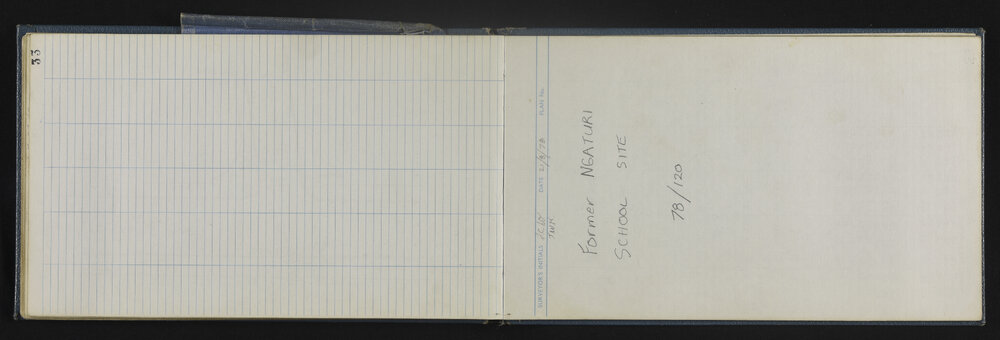 33
SURVEYOR'S INITIALS DATE 21/9/78 PLAN No.
Former NGATURI
SCHOOL SITE
78/120